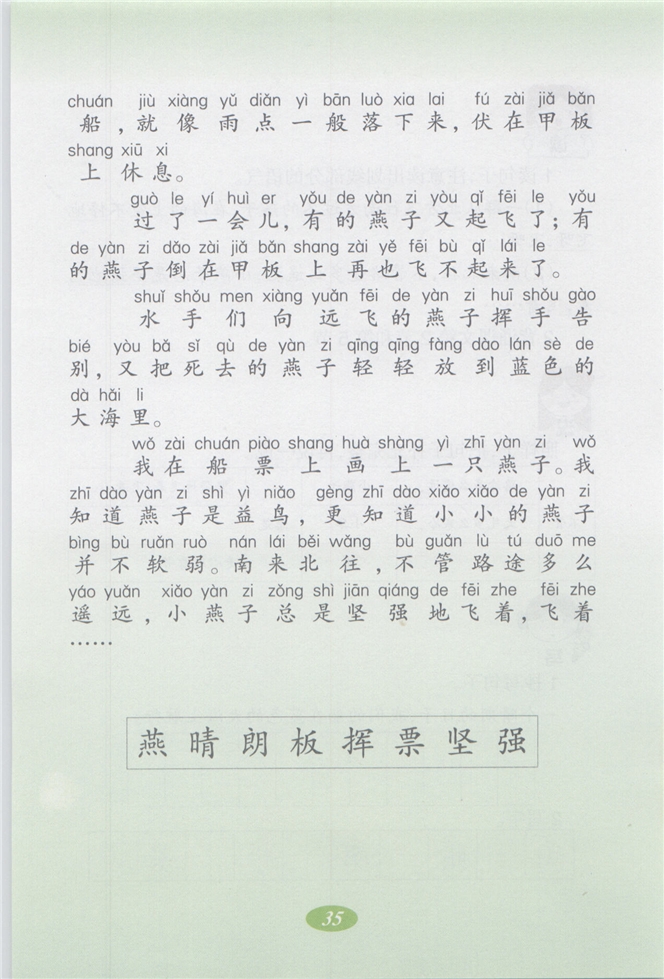 chuán jiù xiàng yǔ diǎn yì bān luò xia lai fú zài jiǎ bǎn
船，就像雨点一般落下来，伏在甲板
shang xiū xi
上休息。
guò le yí huì er yǒu de yàn zi yòu qǐ fēi le yǒu
过了一会儿，有的燕子又起飞了；有
de yàn zi dǎo zài jiǎ bǎn shang zài yě fēi bù qǐ lái le
的燕子倒在甲板上再也飞不起来了。
shuǐ shǒu men xiàng yuǎn fēi de yàn zi huī shǒu gào
水手们向远飞的燕子挥手告
bié yòu bǎ sǐ qù de yàn zi qīng qīng fàng dào lán sè de
别，又把死去的燕子轻轻放到蓝色的
dà hǎi li
大海里。
wǒ zài chuán piào shang huà shàng yì zhī yàn zi wǒ
我在船票上画上一只燕子。我
zhī dào yàn zi shì yì niǎo gèng zhī dào xiǎo xiǎo de yàn zi
知道燕子是益鸟，更知道小小的燕子
bìng bù ruǎn ruò nán lái běi wǎng bù guǎn lù tú duō me
并不软弱。南来北往，不管路途多么
yáo yuǎn xiǎo yàn zi zǒng shì jiān qiáng de fēi zhe fēi zhe
遥远，小燕子总是坚强地飞着，飞着
……
燕晴朗板挥票坚强
35